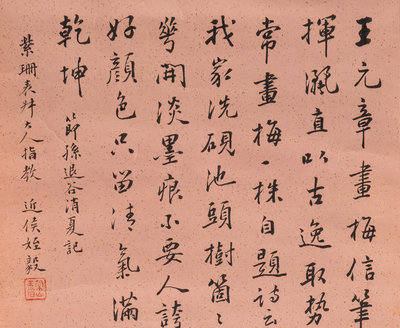 王元章畫梅信筆
揮灑直以古逸取勢
常畫梅一株自題詩云
我家洗硯池頭樹箇〻
華開淡墨痕不要人誇
好顏色只留清氣滿
乾坤
節孫退谷消夏記
紫珊表叔大人指教 近侯姪毅